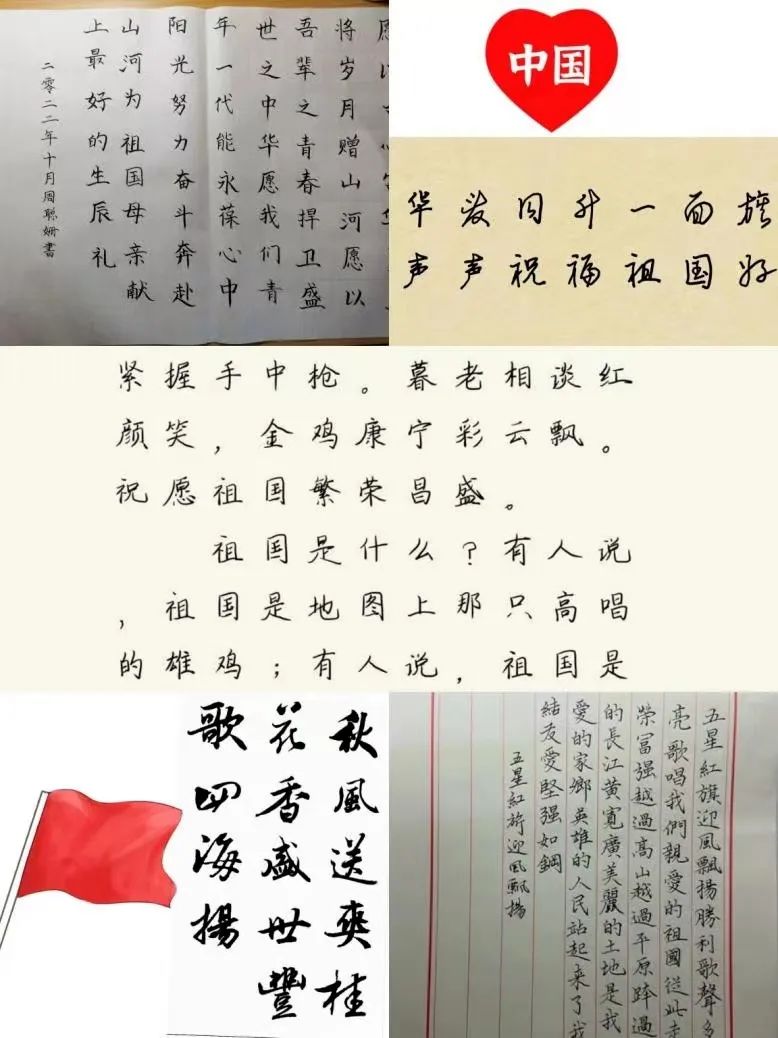 将岁月赠山河愿以
吾辈之青春捍卫盛
世之中华愿我们青
年一代能永葆心中
阳光努力奋斗奔赴
山河为祖国母亲献
上最好的生辰礼
二零二二年十月周聪姗書
中国
华发同升一面旗
声声祝福祖国好
紧握手中枪。暮老相谈红
颜笑，金鸡康宁彩云飘。
祝愿祖国繁荣昌盛。
祖国是什么？有人说
，祖国是地图上那只高唱
的雄鸡；有人说，祖国是
秋風送爽桂
花香盛世豐
歌四海揚
五星紅旗迎風飄揚勝利歌聲多
亮歌唱我們親愛的祖國從此走
榮冨强越過高山越過平原跨過
的長江黄寬廣美麗的土地是我
愛的家鄉英雄的人民站起来了我
結友愛堅强如鋼
五星紅旂迎風飄揚